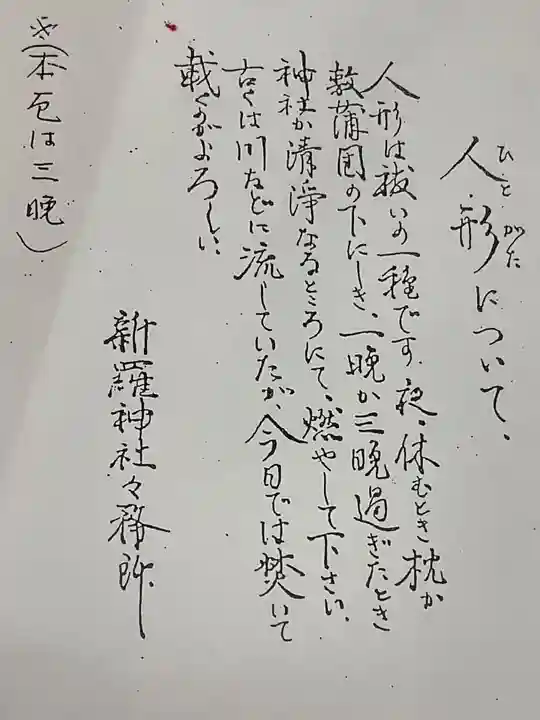 人形について、
ひとがた
人形は祓いの一種です、夜、休むとき枕か
敷蒲団の下にしき、一晩か三晩過ぎたとき
神社か清浄なるところにて、燃やして下さい。
古くは川などに流していたが、今日では焚いて
載くがよろしい、
新羅神社々務所
(本包は三晩)